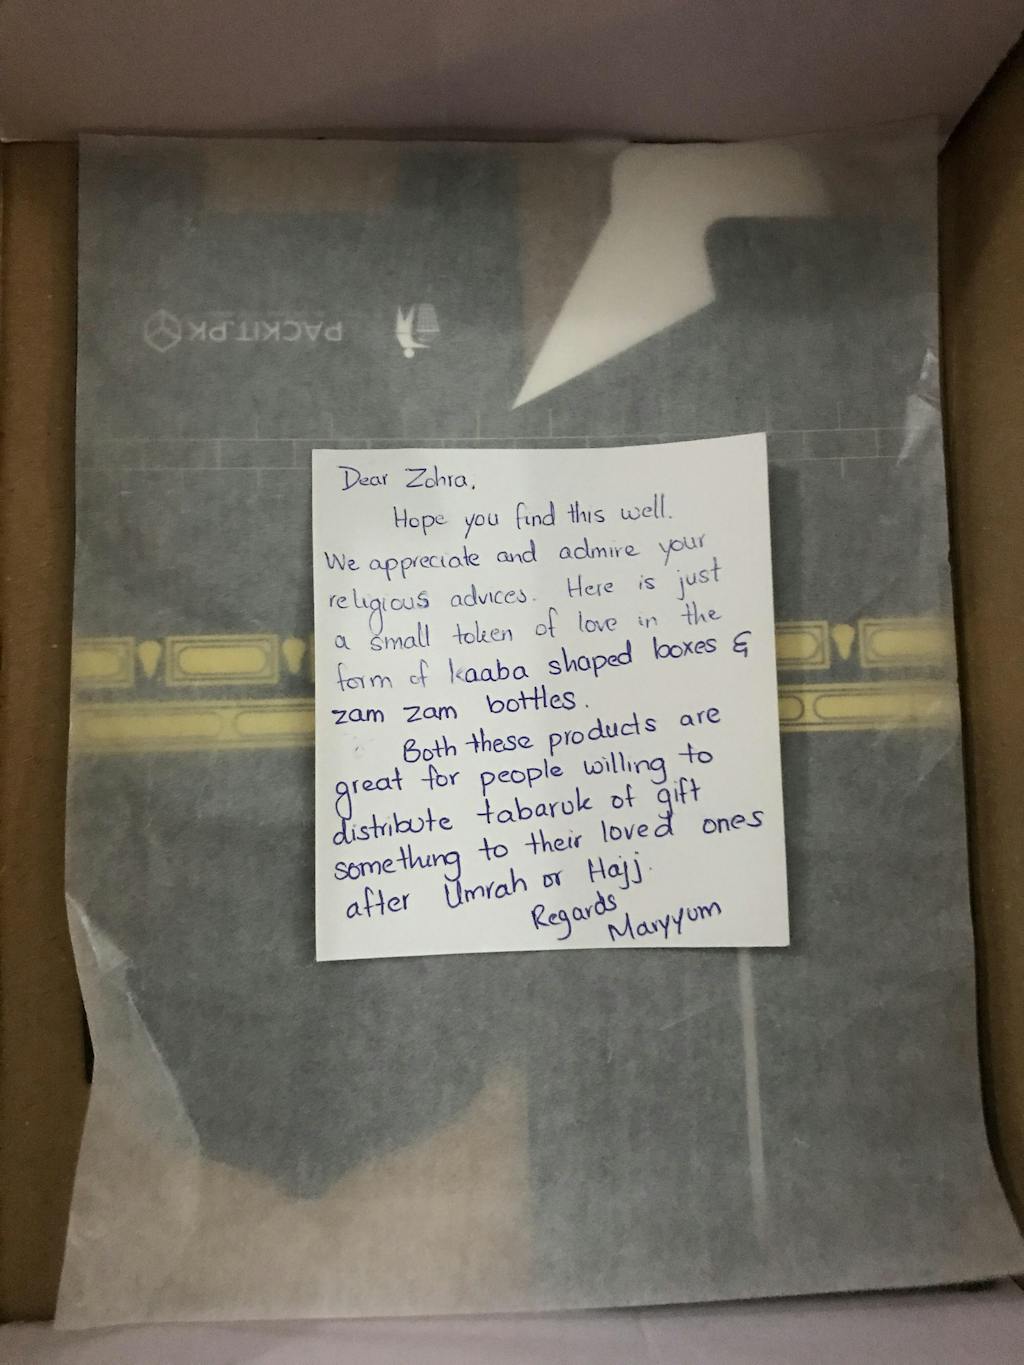 PACKIT.PK
Dear Zohra,
Hope you find this well.
We appreciate and admire your
religious advices. Here is just
a small token of love in the
form of kaaba shaped boxes &
zam zam bottles.
Both these products are
great for people willing to
distribute tabaruk of gift
something to their loved ones
after Umrah or Hajj.
Regards
Maryyum